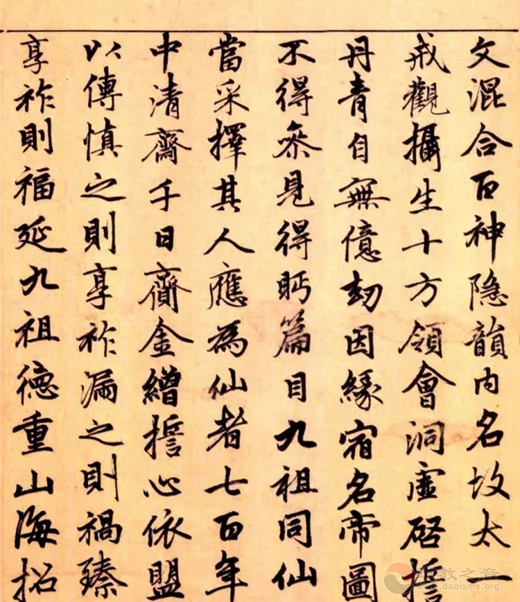 文混合百神隐韻内名故太一
戒觀攝生十方領會洞虛啓誓
丹青自無億劫因緣宿名帝圖
不得叅見得眄篇目九祖同仙
當采擇其人應為仙者七百年
中清齋千日齎金繒誓心依盟
以傳慎之則享祚漏之則禍臻
享祚則福延九祖德重山海招
道教之音
www.daoisms.org